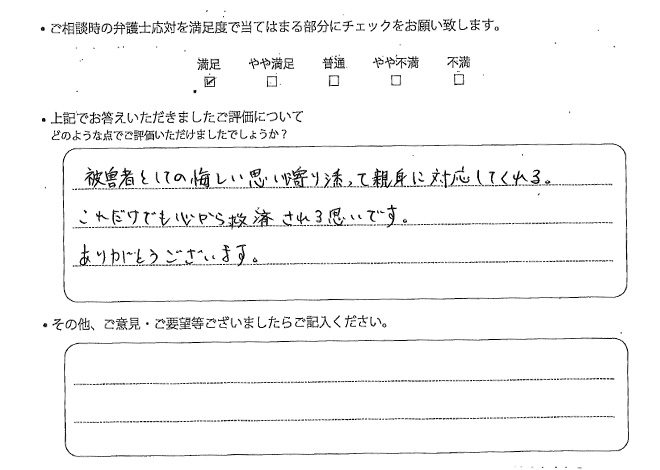 ・ご相談時の弁護士応対を満足度で当てはまる部分にチェックをお願い致します。
満足 やや満足 普通 やや不満 不満
・上記でお答えいただきましたご評価について
どのような点でご評価いただけましたでしょうか？
被害者としての悔しい思い寄り添って親身に対応してくれる。
これだけでも心から救済される思いです。
ありがとうございます。
・その他、ご意見・ご要望等ございましたらご記入ください。